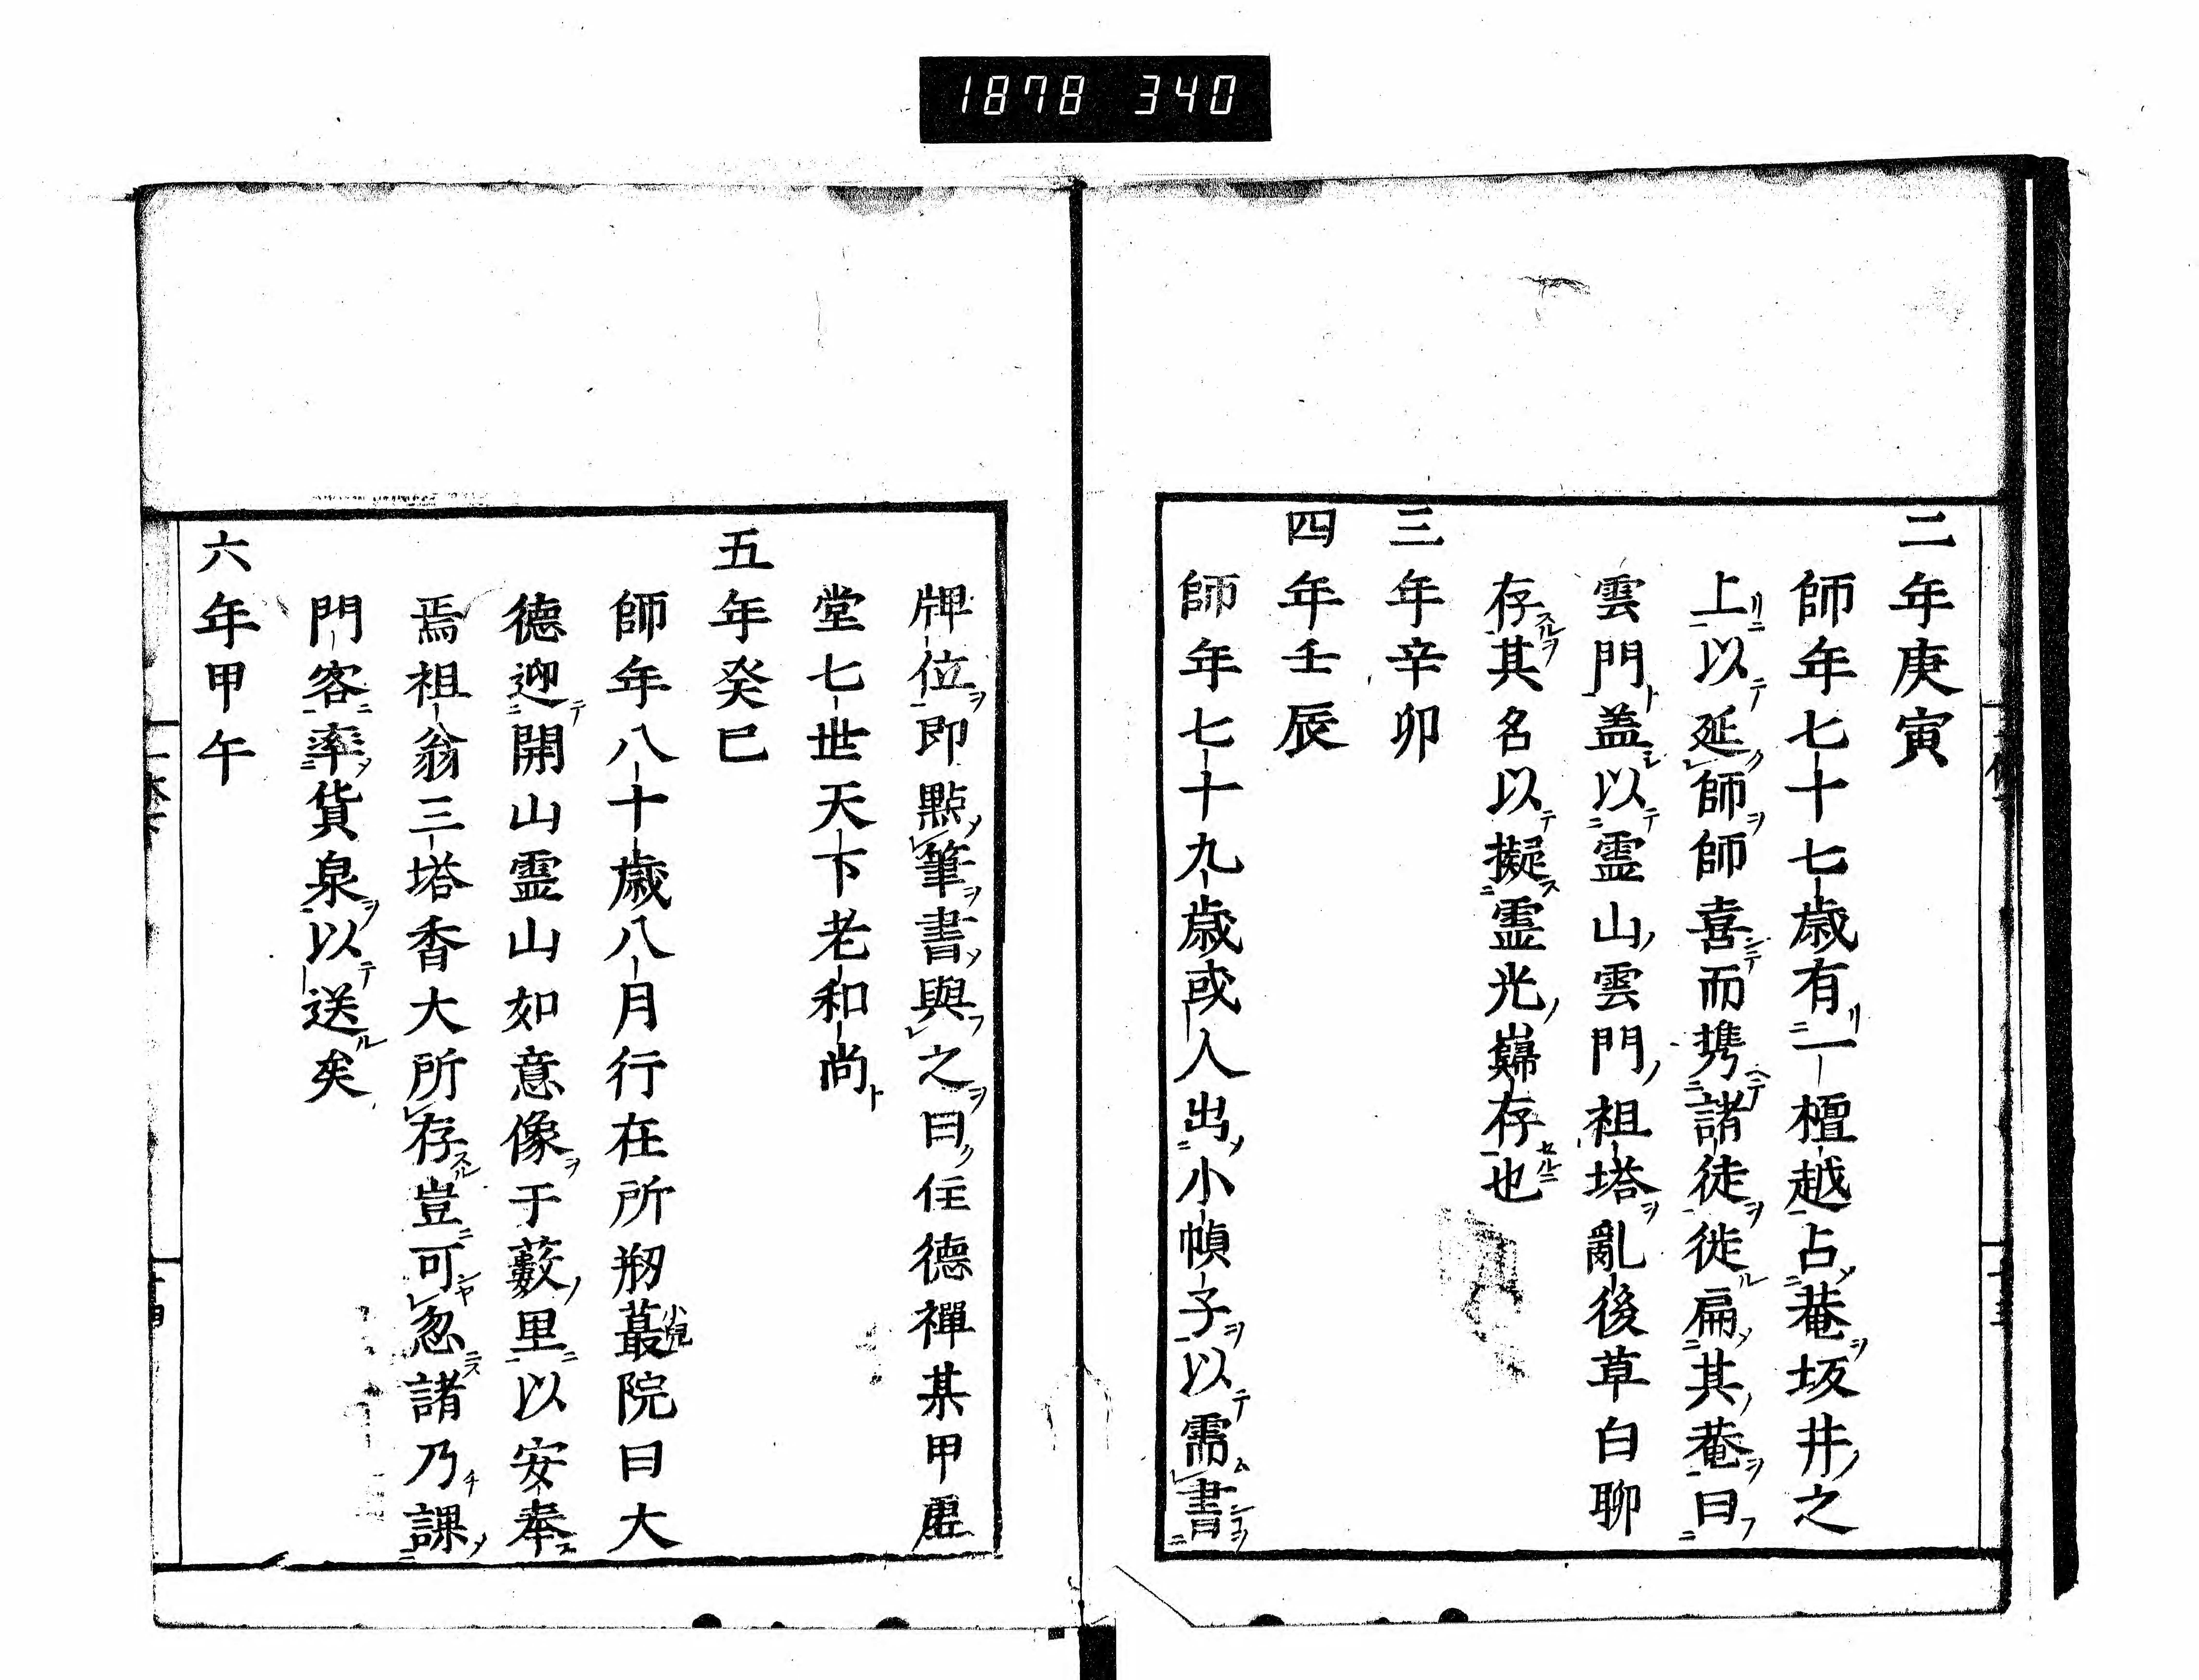 1878 340
二年庚寅
師年七十七歳有一檀越占菴坂井之
上以延師師喜而携諸徒徙扁其菴曰
雲門盖以霊山雲門祖塔亂後草白聊
存其名以擬霊光巋存也
三年辛卯
四年壬辰
師年七十九歳或人出小幀子以需書
牌位即點筆書與之曰住德禪某甲虚
堂七世天下老和尚
五年癸巳
師年八十歳八月行在所剏蕞院曰大
德迎開山霊山如意像于薮里以安奉
焉祖翁三塔香大所存豈可忽諸乃課
門客率貨泉以送矣
六年甲午